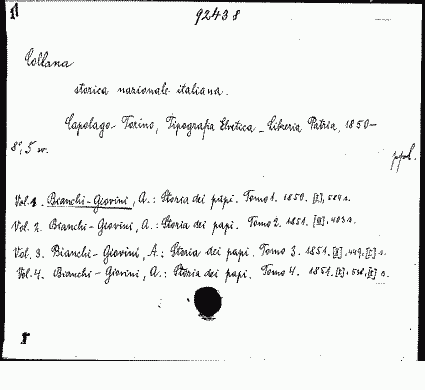 92438
Collana
storica nazionale italiana.
Capolago-Torino, Tipografia Elvetica - Libreria Patria, 1850-
8°, 5 w.
ppl.
Vol. 1. Bianchi-Giovini, A.: Storia dei papi. Tomo 1. 1850. [I], 504 s.
Vol. 2. Bianchi-Giovini, A.: Storia dei papi. Tomo 2. 1851. 403 s.
Vol. 3. Bianchi-Giovini, A.: Storia dei papi. Tomo 3. 1851. 449, [I] s.
Vol. 4. Bianchi-Giovini, A.: Storia dei papi. Tomo 4. 1851. [I] s.